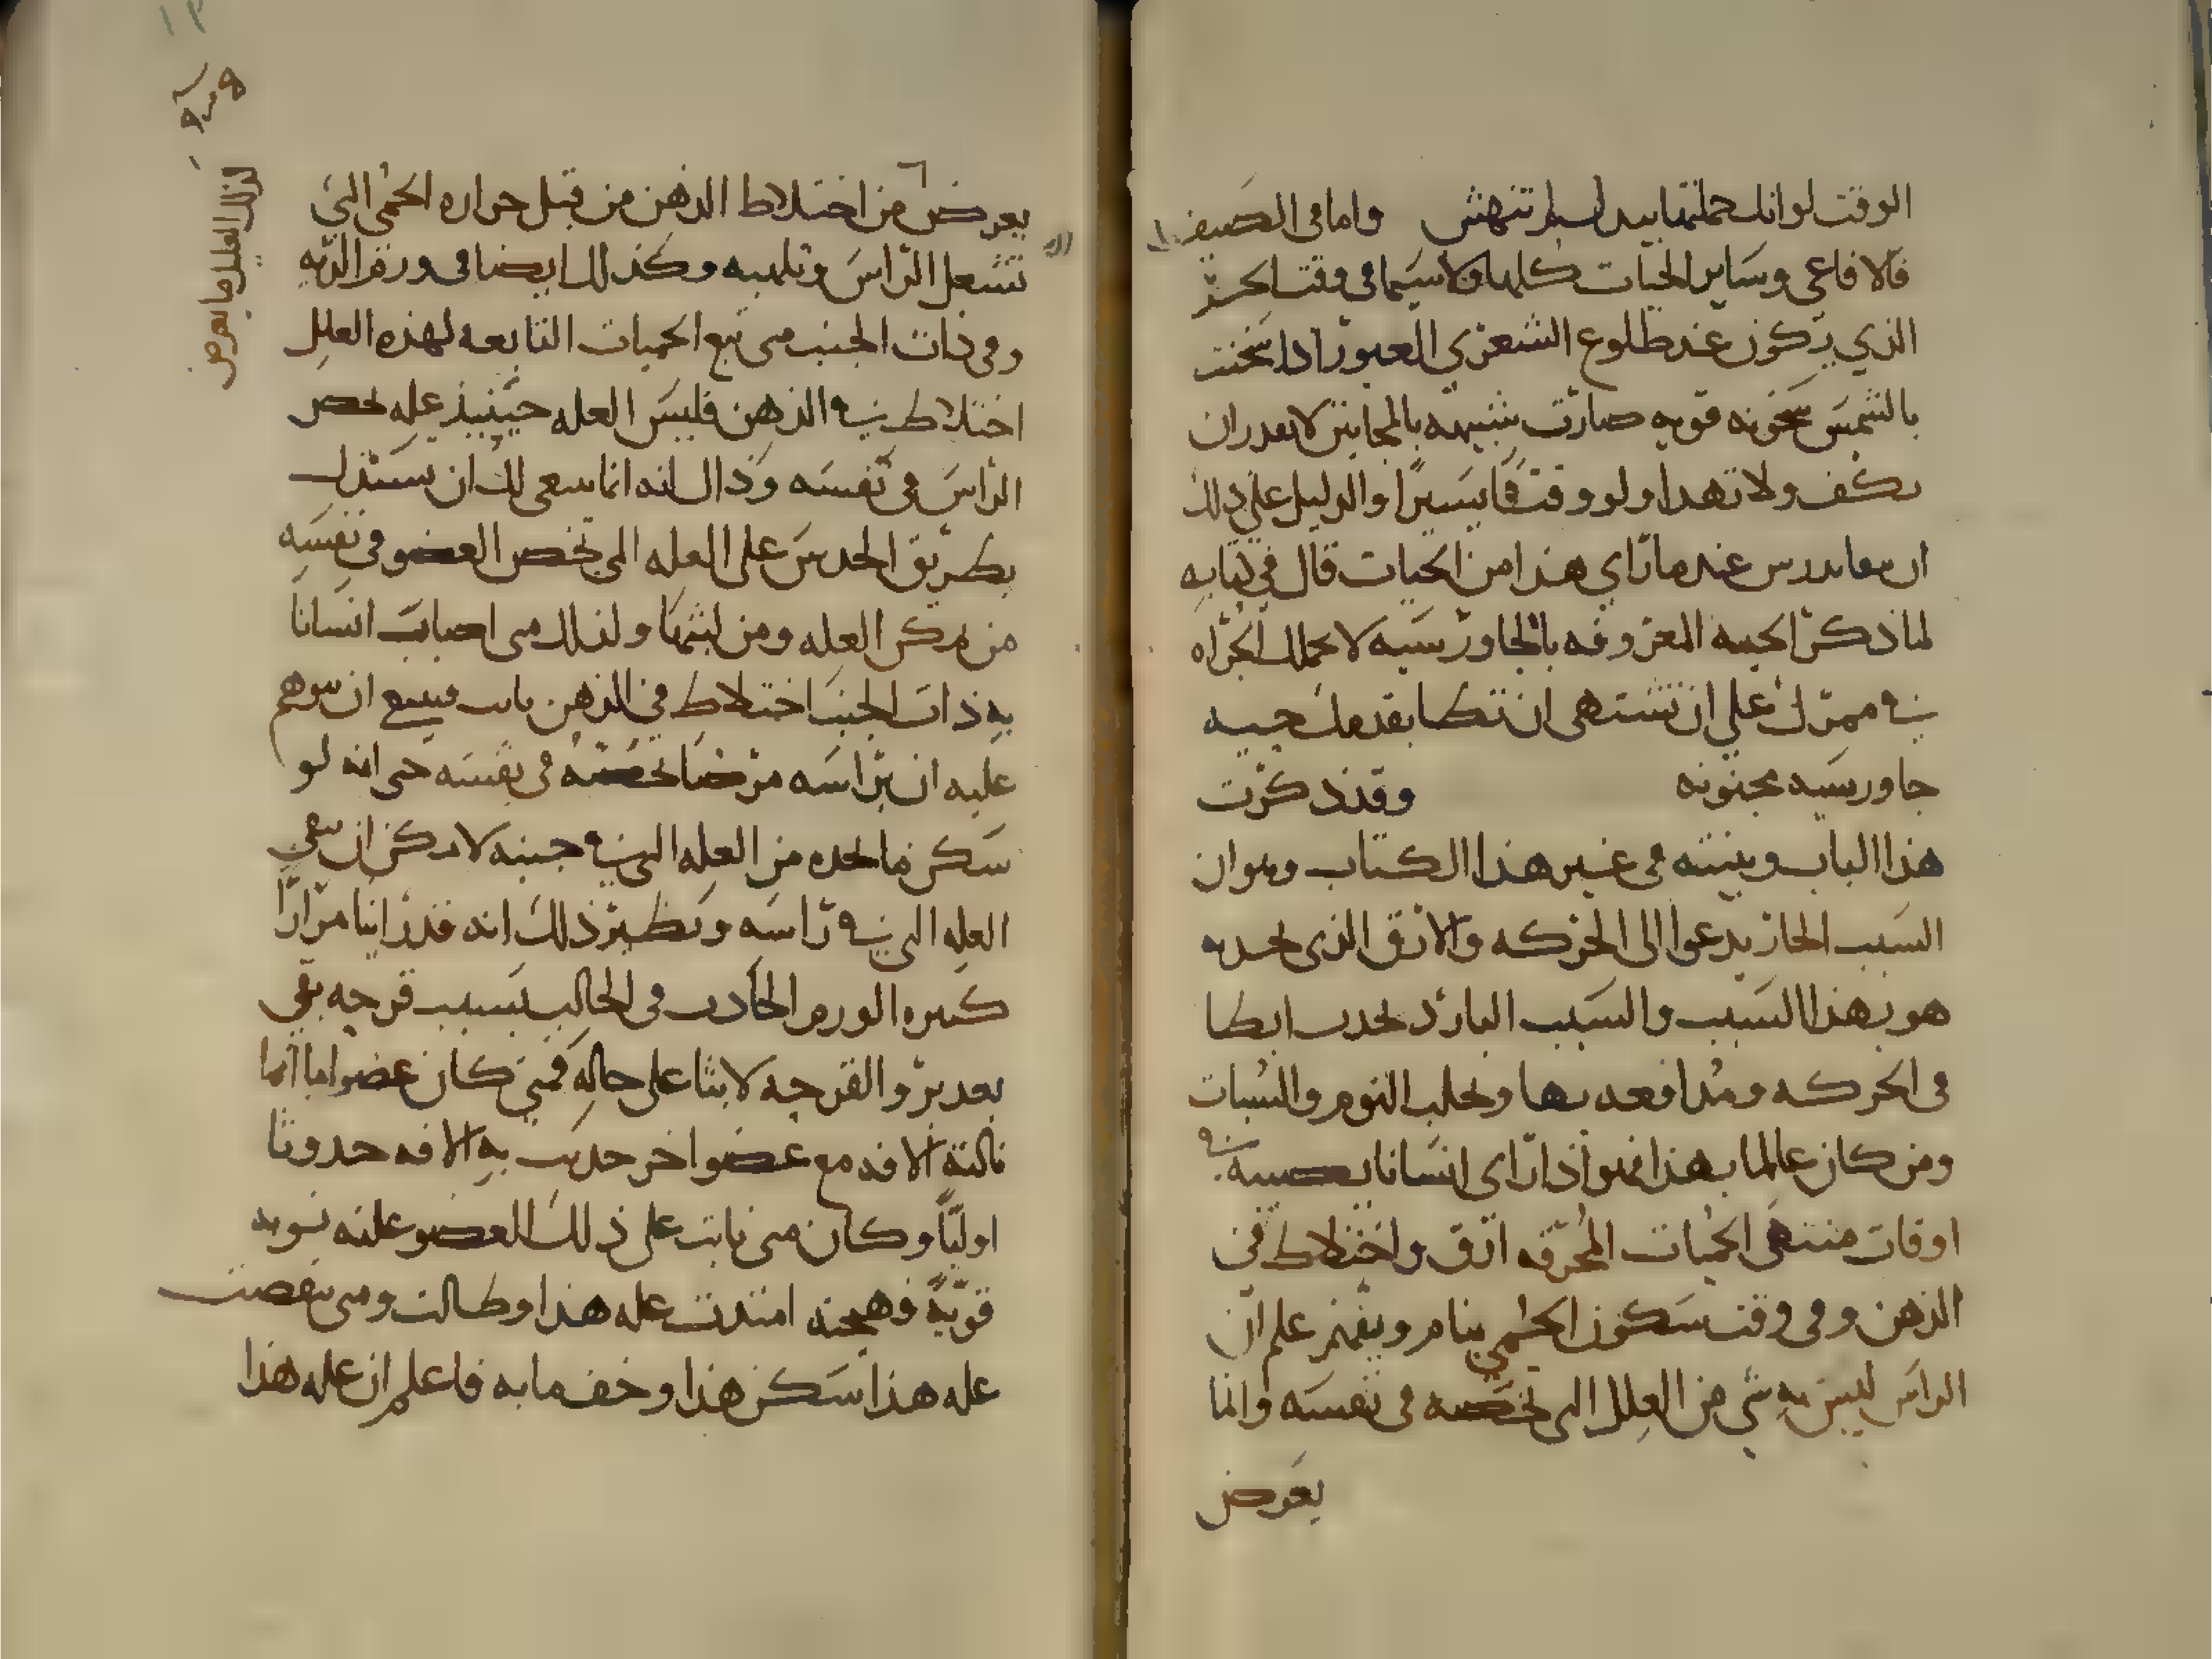 الوقت لو انك حملتها بيدك لم تنهش واما في الصيف
فالافاعي وساير الحيات كلها ولاسيما في وقت الحر
الذي يكون عند طلوع الشعري العبور اذا سخنت
بالشمس سخونه قويه صارت شبيهه بالمجانين لا تقدر ان
تكف ولا تهدا ولو وقتا يسيرا والدليل علي ذلك
ان عند ما راي هذا من الحيات قال في كتابه
لما ذكر الحيه المعروفه بالجاورسيه لا تحملك الجراه
في ممرك علي ان تشتهي ان تطا بقدمك حيه
جاورسيه مجنونه وقد ذكرت
هذا الباب وبينته في غير هذا الكتاب وهو ان
السبب الحار يدعوا الى الحركه والارق الذي يحدث
هو بهذا السبب والسبب البارد يحدث ابطا
في الحركه ومدافعه بها ويجلب النوم والسبات
ومن كان عالما بهذا فهو اذا راي انسانا يصيبه في
اوقات منتهى الحميات المحرقه ارق واختلاط في
الذهن وفي وقت سكون الحمى ينام ويفهم علم ان
الراس ليس به شي من العلل التي تخصه في نفسه وانما
يعرض
يعرض من اختلاط الذهن من قبل حراره الحمى التي
تشعل الراس وتلهبه وكذلك ايضا في ورم الريه
وفي ذات الجنب متى تبع الحميات التابعه لهذه العلل
اختلاط في الذهن فليس العله حينيذ عله تخص
الراس في نفسه وذاك انه انما ينبغي لك ان تستدل
بطريق الحدس على العله التي تخص العضو في نفسه
من مركز العله ومن لبثها ولذلك متى اصابت انسانا
به ذات الجنب اختلاط في الذهن ثابت فينبغي ان تتوهم
عليه ان براسه مرضا يخصه في نفسه حتى انه لو
سكن ما يجده من العله التي في جنبه لامكن ان تبقى
العله التي في راسه ونظير ذلك انه قد راينا مرارا
كثيره الورم الحادث في الحالب بسبب قرحه بقي
بعد برو القرحه لابثا على حاله فمتى كان عضوا ما انما
نالته الافه مع عضو اخر حدثت به الافه حدوثا
اوليا وكان متى نابت على ذلك العضو علته نوبه
قويه فهيجته امتدت عله هذا وطالت ومتى نقصت
عله هذا سكن هذا وخف ما به فاعلم ان عله هذا
لذلك العليل ما يعرض
١٢